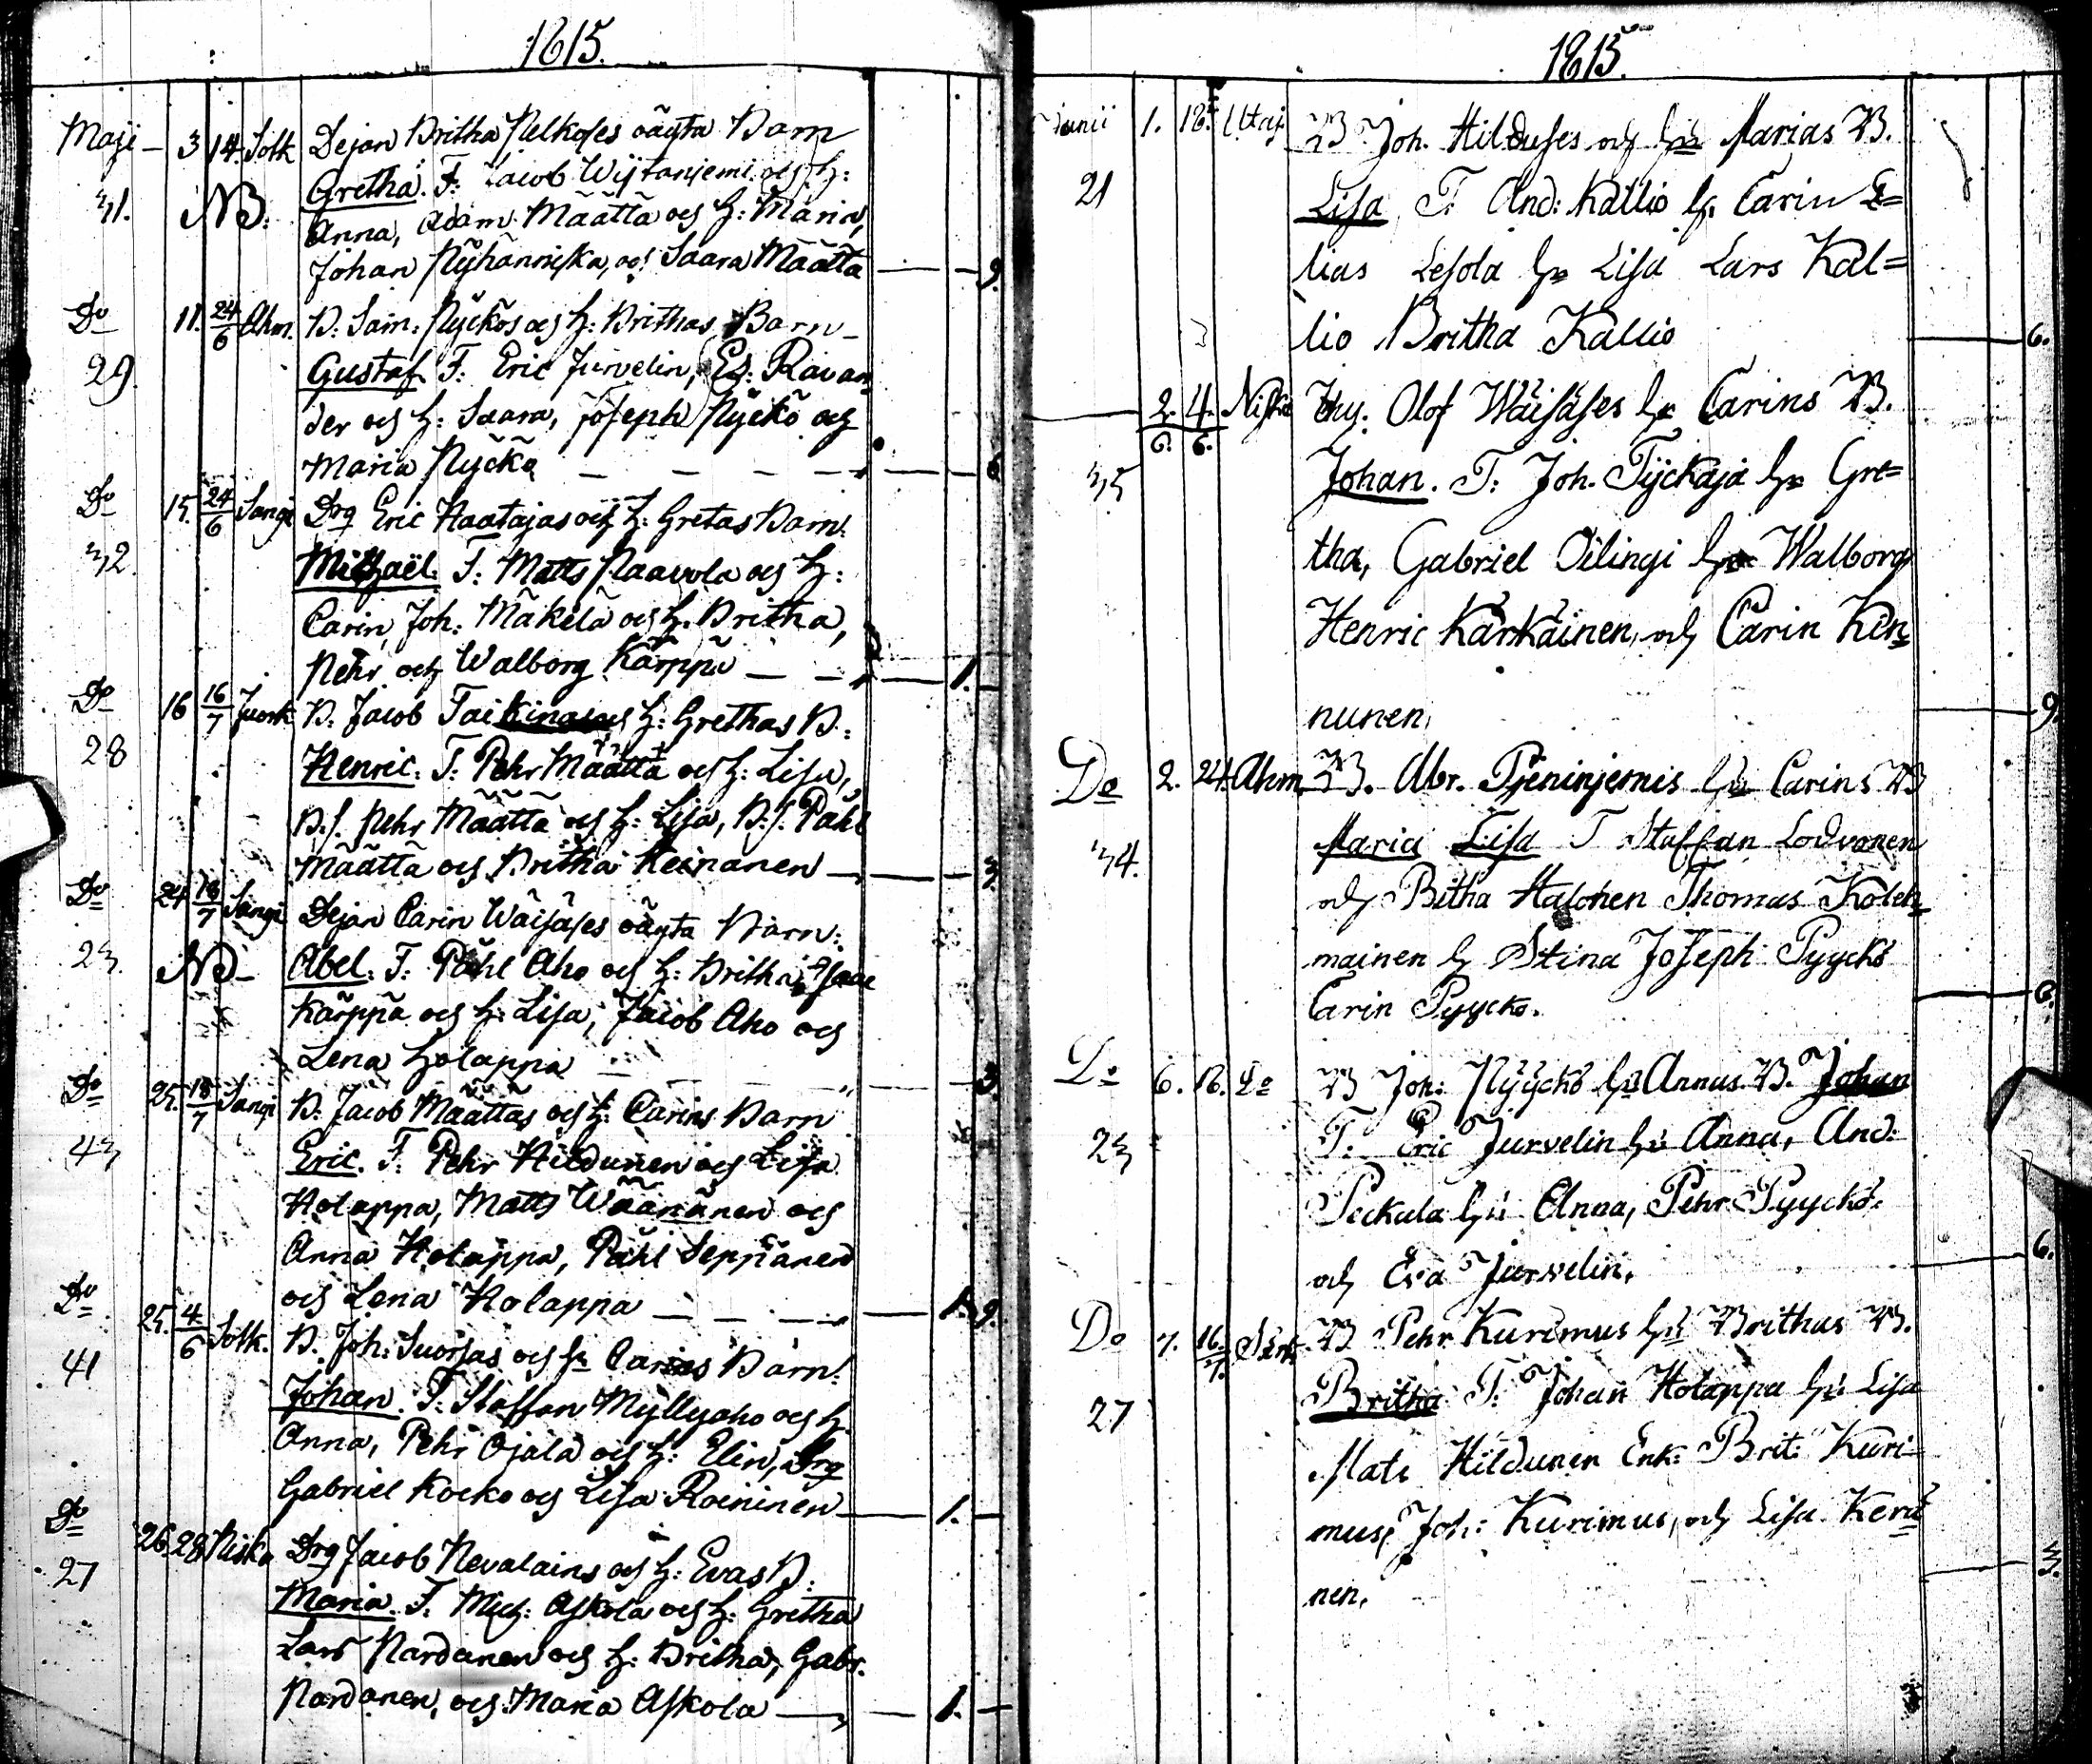 1815.
Maji 3 14. Sotk Dejan Britha Pelkoses oägta Barn
Gretha. F: Jacob Wijtanjemi och H:
31. NB. Anna, Adam Määttä och H: Maria,
Johan Pyhänniska, och Saara Määttä 9.
Do 11. 24/6 Ahm. B: Sam: Pyckös och H: Brithas Barn
29. Gustaf F: Eric Jurvelin, Ravan
der och H: Saara, Joseph Pyckö och
Maria Pyckö 6
Do 15. 24/6 Sangi Drg Eric Haatajas och H: Gretas Barn:
32. Michaël: F: Matts Paavola och H:
Carin, Joh: Mäkelä och H. Britha,
Pehr och Walborg Kärppä 1.
Do 16 16/7 Juork B: Jacob Taikinas och H: Grethas B:
28 Henric: F: Pehr Määttä och H: Lisa,
B.s. Pehr Määttä och H: Lisa, B:s. Påhl
Määttä och Britha Keinänen 3.
Do 24 18/7 Sangi Dejan Carin Wäisäses oägta Barn:
23. NB Abel: F: Påhl Aho och H: Britha, Isaac
Kärppä och H: Lisa, Jacob Aho och
Lena Holappa 3.
Do 25. 18/7 Sangi B: Jacob Määttäs och H: Carins Barn
43 Eric. F: Pehr Hildunen och Lisa
Holappa, Matts Wäänänen och
Anna Holappa, Påhl Seppänen
och Lena Holappa 1. 9.
Do 25. 4/6 Sotk. B. Joh: Suorsas och H: Carins Barn:
41 Johan. F: Staffan Myllyaho och H.
Anna, Pehr Ojala och H: Elin, Drg
Gabriel Kocko och Lisa Roininen 1.
Do 26. 28 Niska Drg Jacob Nevalains och H: Evas B:
27 Maria. F: Mich: Askola och H: Gretha
Lars Pardanen och H: Britha, Gabr.
Pardanen, och Maria Askola 1.
1815.
Junii 1. 18. Utaj. B Joh. Hilduses och Hu Marias B.
21 Lisa F. And: Kallio H. Carin E=
lias Lesola Hu Lisa Lars Kal=
lio Britha Kallio 6.
2/6. 4/6. Niska Olof Wäisäses Hu Carins B.
35 Johan. F: Joh. Tyckäjä Hu Gre=
tha, Gabriel Oilingi Hu Walborg
Henric Kärkäinen, och Carin Kin=
nunen. 9.
Do 2. 24. Ahm. B. Abr. Pieninjemis Hu Carins B
34. Maria Lisa F Staffan Lodvonen
och Britha Halonen Thomas Koleh=
mainen H Stina Joseph Pyyckö
Carin Pyyckö. 6.
Do 6. 18. Do B Joh: Pyyckö Hu Annas B. Johan
23 F: Eric Jurvelin Hu Anna, And:
Peckala Hu Anna, Pehr Pyyckö.
och Eva Jurvelin. 6.
Do 7. 16/7. B Pehr Kurimus Hu Brithas B.
27 Britha F: Johan Holappa Hu Lisa
Mats Hildunen Enk: Brit: Kuri=
mus, Joh: Kurimus, och Lisa Kerä=
nen. 3.